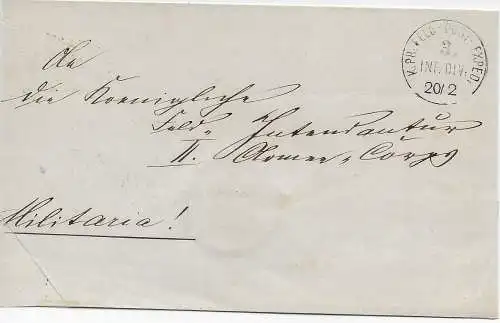 An
die Koenigliche
Feld-Intendantur
II. Armee-Corps
Militaria!
K.PR. FELD-POST-EXPED.
3.
INF. DIV.
20/2